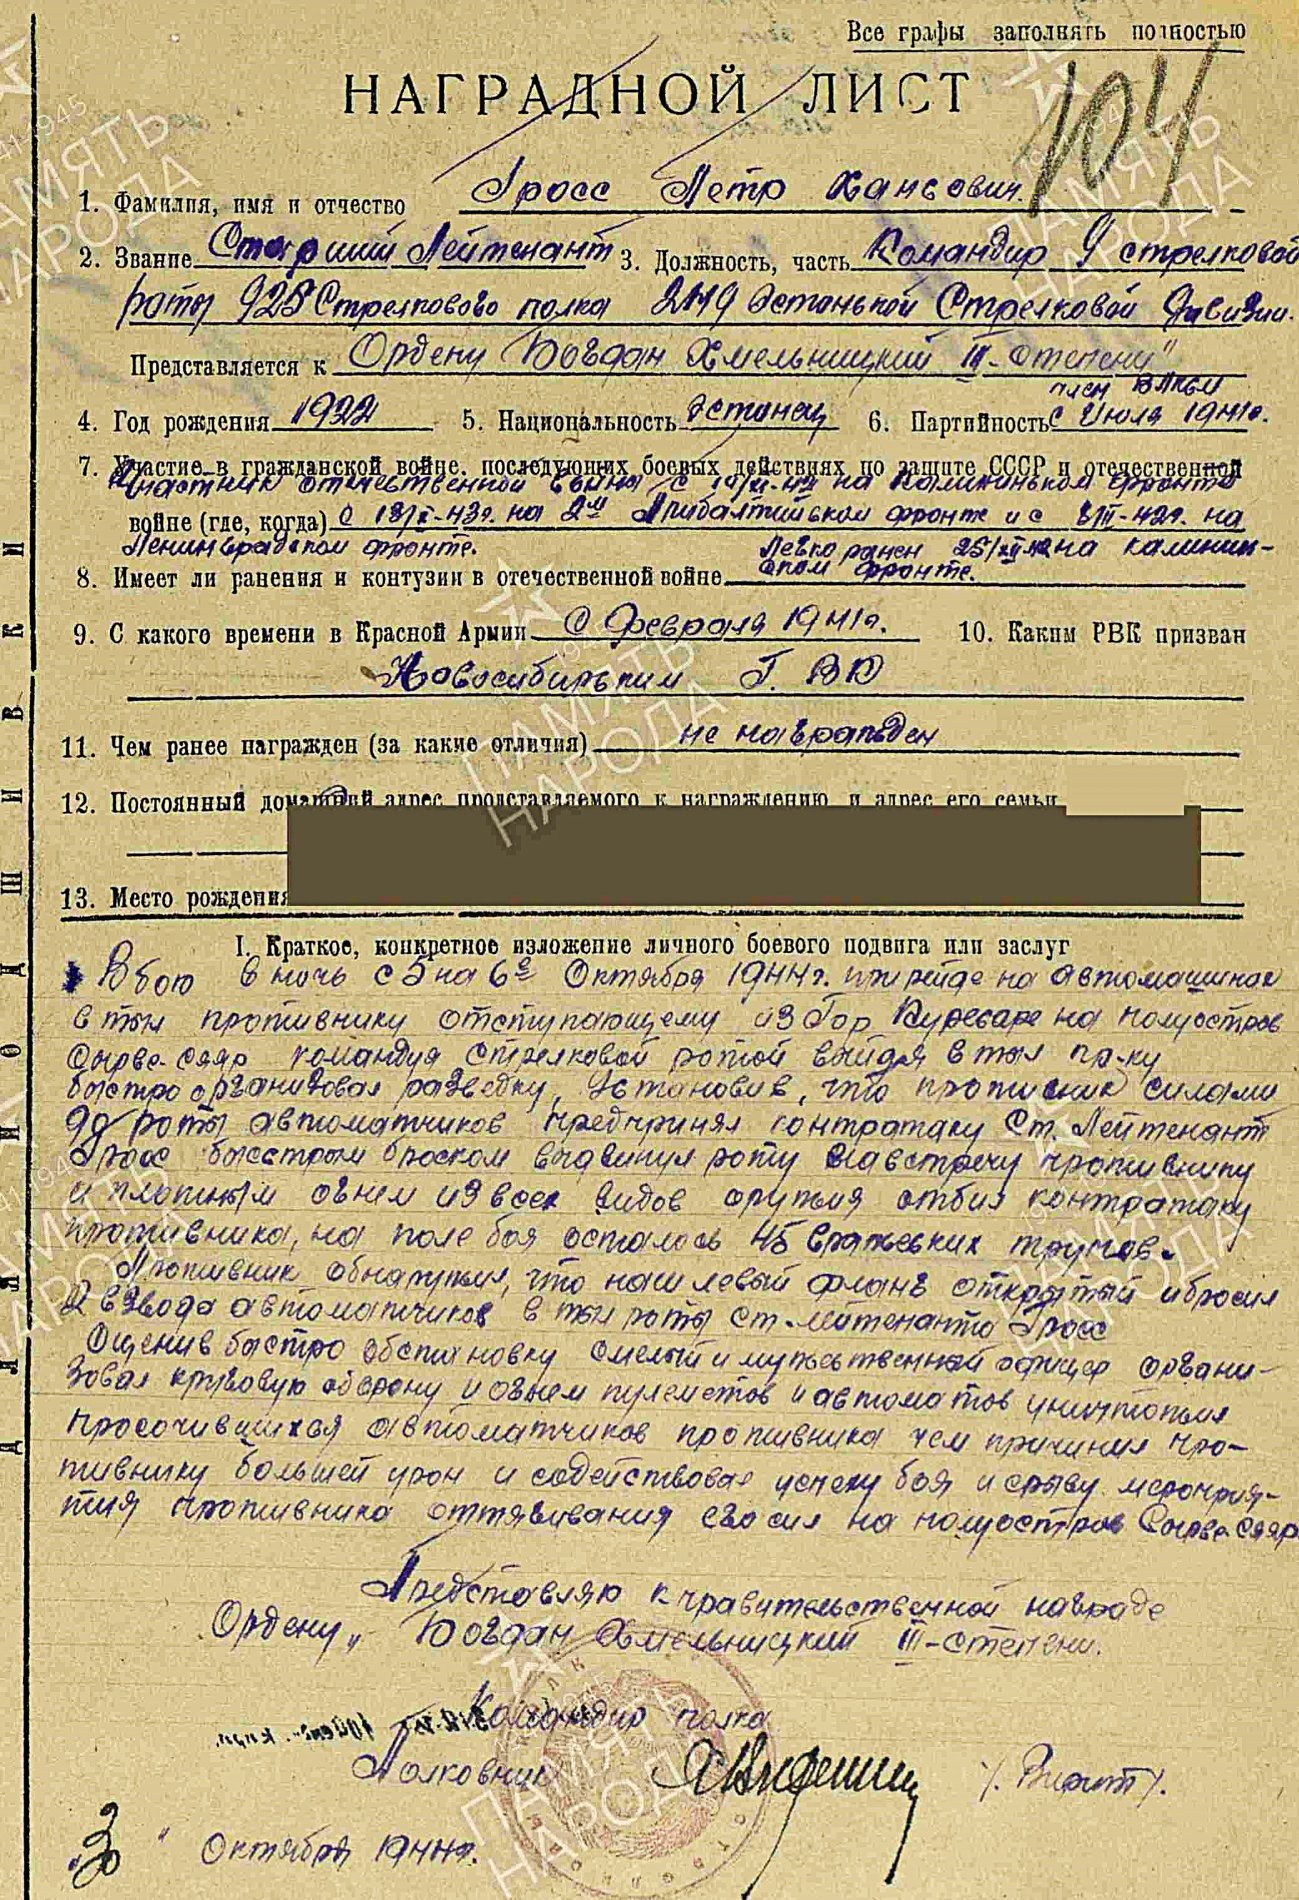 Все графы заполнять полностью
НАГРАДНОЙ ЛИСТ
104
1. Фамилия, имя и отчество Гросс Петр Хансович.
2. Звание Старший Лейтенант 3. Должность, часть Командир 9 стрелковой
роты 925 Стрелкового полка 249 Эстонской Стрелковой Дивизии.
Представляется к Ордену „Богдан Хмельницкий III-степени"
член ВЛКСМ
4. Год рождения 1922 5. Национальность эстонец 6. Партийность с Июля 1941г.
7. Участие в гражданской войне, последующих боевых действиях по защите СССР и отечественной
Участник отечественной войны с на Калининском фронте
войне (где, когда) с на 2м Прибалтийском фронте и с на
Ленинградском фронте. Легко ранен на Калинин-
8. Имеет ли ранения и контузии в отечественной войне ском фронте.
9. С какого времени в Красной Армии С Февраля 1941г. 10. Каким РВК призван
Новосибирским Г. ВК
11. Чем ранее награжден (за какие отличия) не награжден
12. Постоянный домашний адрес представляемого к награждению и адрес его семьи
13. Место рождения
I. Краткое, конкретное изложение личного боевого подвига или заслуг
В бою в ночь с 5 на 6е Октября 1944г. при рейде на автомашинах
в тыл противнику отступающему из Гор Куресааре на полуостров
Сырве-Сяяр командуя стрелковой ротой выйдя в тыл пр-ку
быстро организовал разведку, Установив, что противник силами
до роты автоматчиков предпринял контратаку Ст. Лейтенант
Гросс быстрым броском выдвинул роту навстречу противнику
и плотным огнем из всех видов оружия отбил контратаку
противника, на поле боя осталось 45 вражеских трупов.
Противник обнаружил, что наш левый фланг открытый и бросил
2 взвода автоматчиков в тыл роты ст. лейтенанта Гросс
Оценив быстро обстановку смелый и мужественный офицер органи-
зовал круговую оборону и огнем пулеметов и автоматов уничтожил
просочившихся автоматчиков противника чем причинил про-
тивнику большей урон и содействовал успеху боя и срыву мероприя-
тия противника оттягивания его сил на полуостров Сырве-Сяяр
Представляю к правительственной награде
Ордену „Богдан Хмельницкий III-степени.
Командир полка
Полковник
„30" Октября 1944г.
ДЛЯ ПОДШИВКИ
ПАМЯТЬ НАРОДА
1941-1945